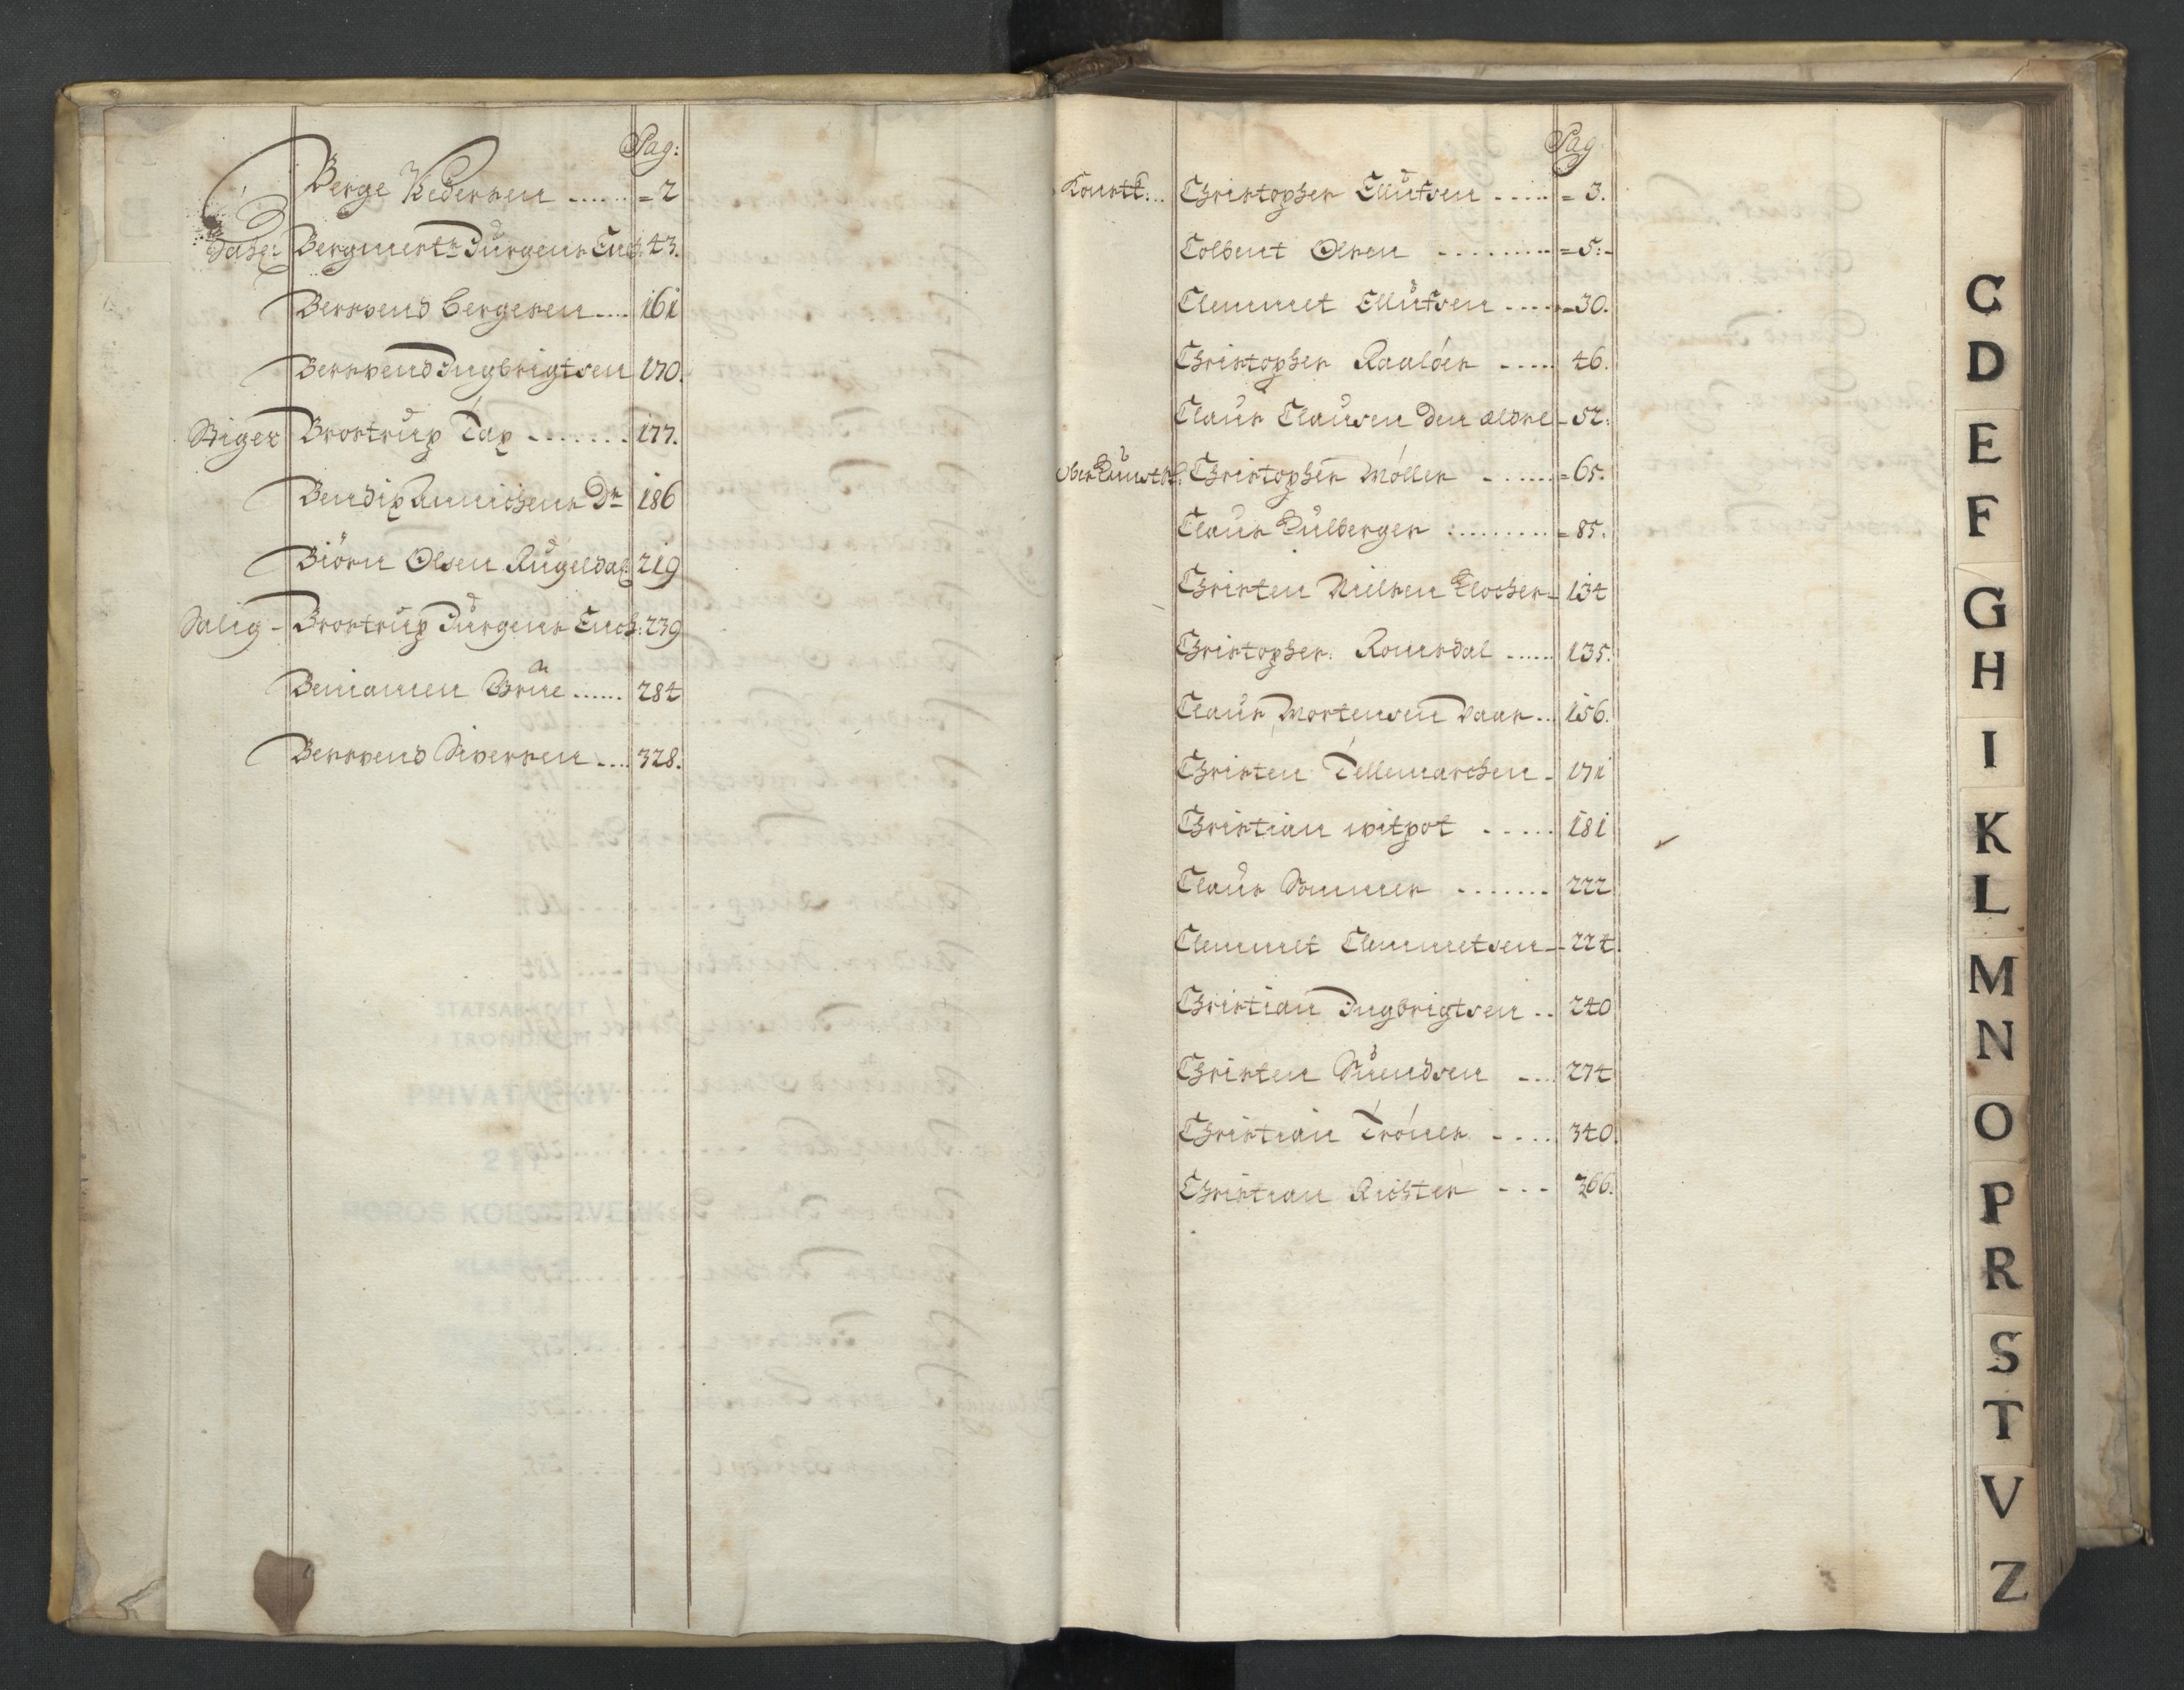 Pag:
Berge Pedersen ...... = 2
Bergmestr Jürgens Enck: 43.
Berrvend bergesen .... 161
Berrvend Ingbrigtsen 170.
Stiger Brostrup Tax ....... 177.
Bendix Rennichens Dr 186
Biörn Olsen Rugeldal 219
Salig - Brostrup Jürgens Enck: 239
Beniamen Brüe ...... 284
Berrvend Siversen .... 328.
Pag
Kunstk:.. Christopher Ellüfsen ..... = 3.
Colbent Olsen ......... = 5:-
Clemmet Ellüfsen ..... = 30.
Christopher Raalöer ..... 46.
Claus Clausen den ældre - 52:
Ober Kunstk: Christopher Möller ...... = 65.
Claus Külberger .......... = 85.
Christen Nielsen Klocker - 134
Christopher Romsdal ...... 135.
Claus Mortensen Daar .. 156.
Christen Tellemarchen - 171
Christian witpot ..... 181
Claus Sommer ....... 222
Clemmet Clemmetsen - 224
Christian Ingbrigtsen .. 240
Christen Svendsen ... 274
Christian Tröner .... 340
Christian Richter ... 366.
C
D
E
F
G
H
I
K
L
M
N
O
P
R
S
T
V
Z
STATSARKIVET
I TRONDHEIM
PRIVATARKIV
RØROS KOBBERVERK